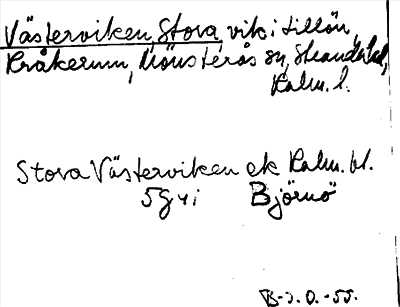 Västerviken, Stora, vik i Lillön,
Kråkerum, Mönsterås sn, Stranda hd,
Kalm. l.
Stora Västerviken ek Kalm. bl.
5G4i Björnö
B-J.O.-55.